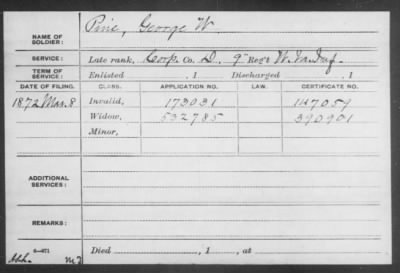 NAME OF SOLDIER: Pine, George W
SERVICE: Late rank, Corp. Co. D. 9" Reg't W. Va. Inf.
TERM OF SERVICE: Enlisted , 1 Discharged , 1
DATE OF FILING. CLASS. APPLICATION NO. LAW. CERTIFICATE NO.
1872 Mar. 8 Invalid, 173031 147059
Widow, 532785 390901
Minor,
ADDITIONAL SERVICES:
REMARKS:
Died , 1 , at